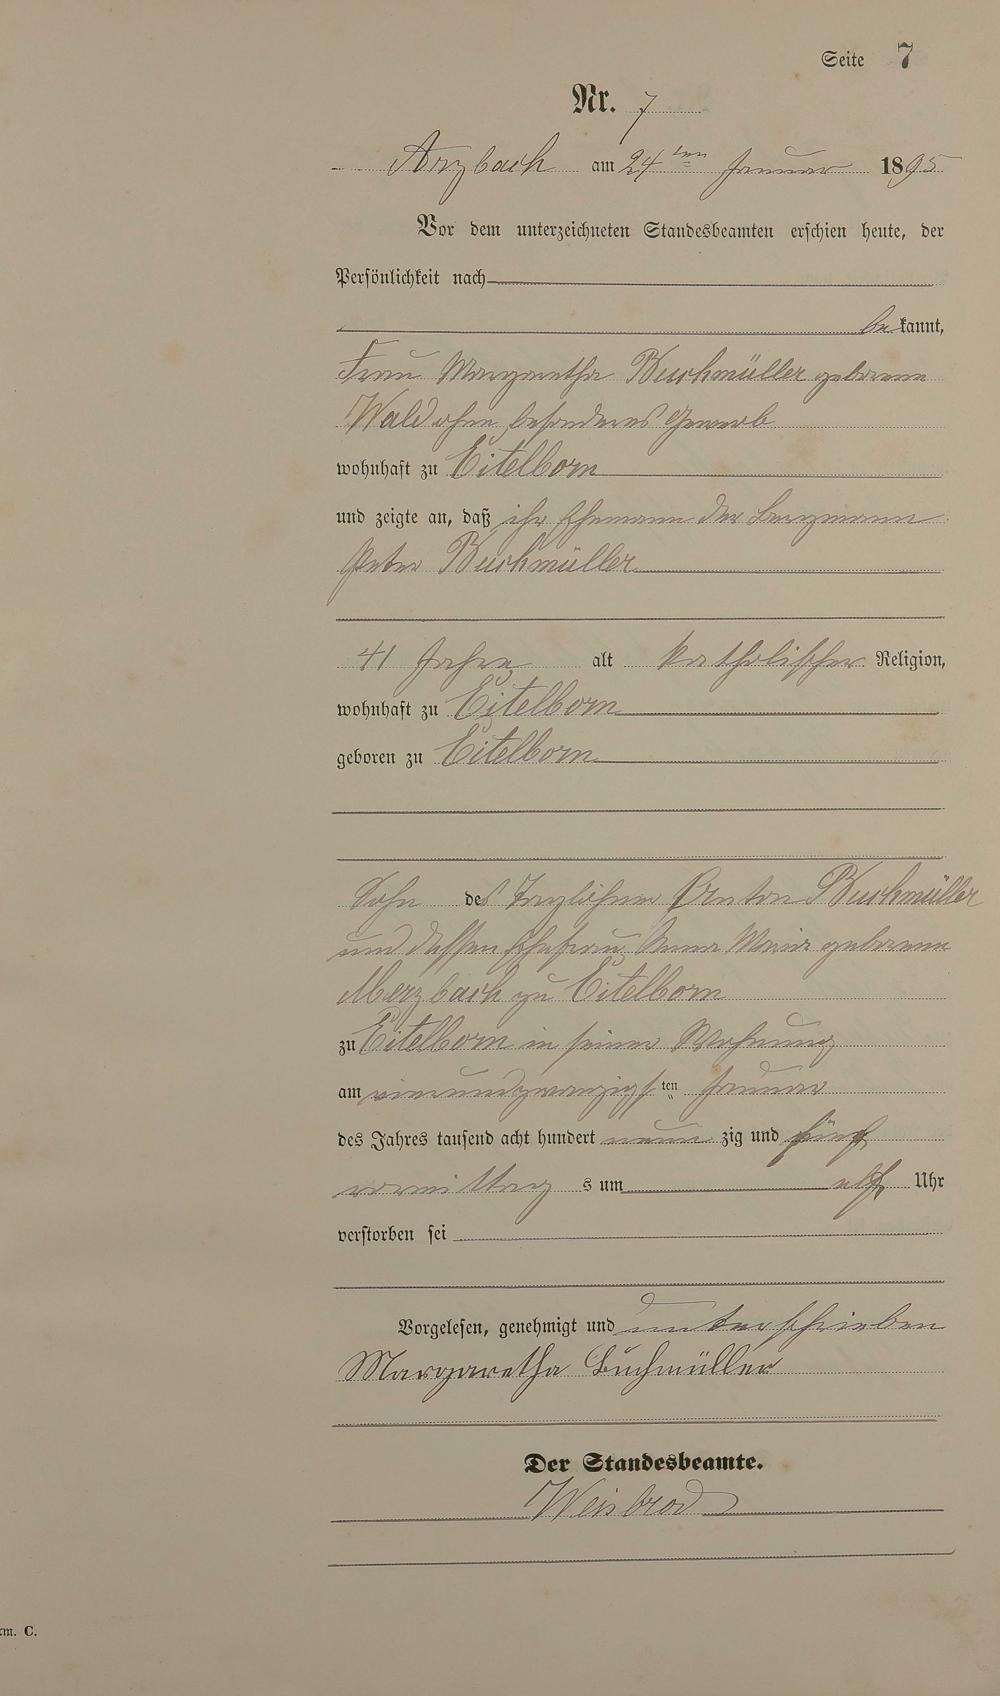 Seite 7
Nr. 7
Arzbach am 24ten Januar 1895
Vor dem unterzeichneten Standesbeamten erschien heute, der
Persönlichkeit nach
bekannt,
Frau Margaretha Buchmüller geborene
Wald ohne besonderes Gewerb
wohnhaft zu Eitelborn
und zeigte an, daß ihr Ehemann der Bergmann
Peter Buchmüller
41 Jahre alt katholischer Religion,
wohnhaft zu Eitelborn
geboren zu Eitelborn
Sohn des Taglöhner Anton Buchmüller
und dessen Ehefrau Anna Maria geborene
Merzbach zu Eitelborn
zu Eitelborn in seiner Wohnung
am einundzwanzigsten Januar
des Jahres tausend acht hundert neunzig und fünf
vormittags um elf Uhr
verstorben sei
Vorgelesen, genehmigt und unterschrieben
Margaretha Buchmüller
Der Standesbeamte.
Weisbrod
rm. C.